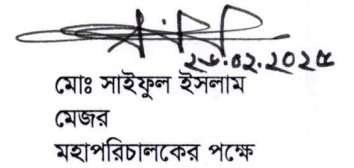 ২৮.০২.২০২৫
মোঃ সাইফুল ইসলাম
মেজর
মহাপরিচালকের পক্ষে